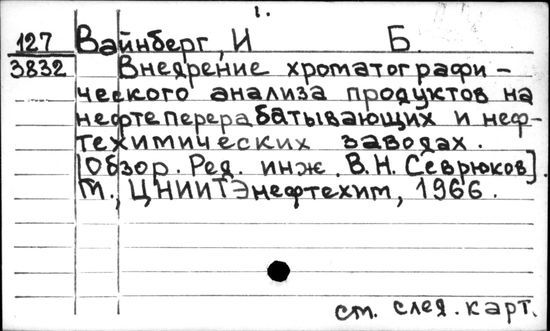 1.
127 Вайнберг, И Б.
3832 Внедрение хроматографи-
ческого анализа продуктов на
нефтеперерабатывающих и неф-
техимических заводах.
[Обзор. Ред. инж. В.Н. Севрюков].
М., ЦНИИТЭнефтехим, 1966.
см. след. карт.